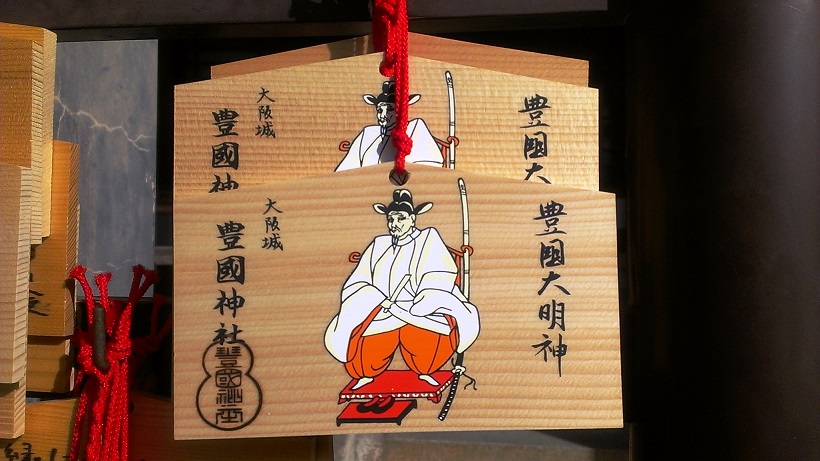 豊國大
大阪城
豊國神
豊國大明神
大阪城
豊國神社
豊國神社
縁